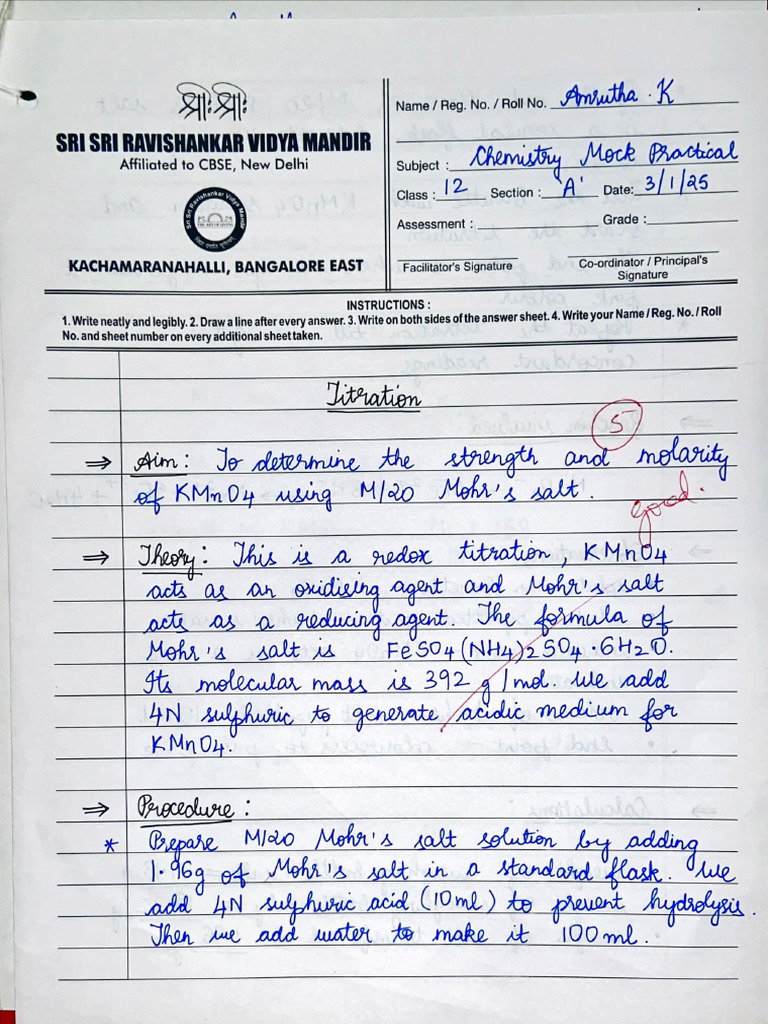 श्री श्री
SRI SRI RAVISHANKAR VIDYA MANDIR
Affiliated to CBSE, New Delhi
Sri Sri Ravishankar Vidya Mandir
THE ART OF LIVING
KACHAMARANAHALLI, BANGALORE EAST
Name / Reg. No. / Roll No. Amrutha . K
Subject : Chemistry Mock Practical
Class : 12 Section : 'A' Date: 3/1/25
Assessment : Grade :
Facilitator's Signature
Co-ordinator / Principal's
Signature
INSTRUCTIONS :
1. Write neatly and legibly. 2. Draw a line after every answer. 3. Write on both sides of the answer sheet. 4. Write your Name / Reg. No. / Roll
No. and sheet number on every additional sheet taken.
Titration
5
⇒ Aim : To determine the strength and molarity
of KMnO4 using M/20 Mohr's salt.
good.
⇒ Theory : This is a redox titration, KMnO4
acts as an oxidising agent and Mohr's salt
acts as a reducing agent. The formula of
Mohr's salt is FeSO4(NH4)2SO4·6H2O.
Its molecular mass is 392 g/mol. We add
4N sulphuric to generate acidic medium for
KMnO4.
⇒ Procedure :
* Prepare M/20 Mohr's salt solution by adding
1.96g of Mohr's salt in a standard flask. We
add 4N sulphuric acid (10ml) to prevent hydrolysis.
Then we add water to make it 100ml.